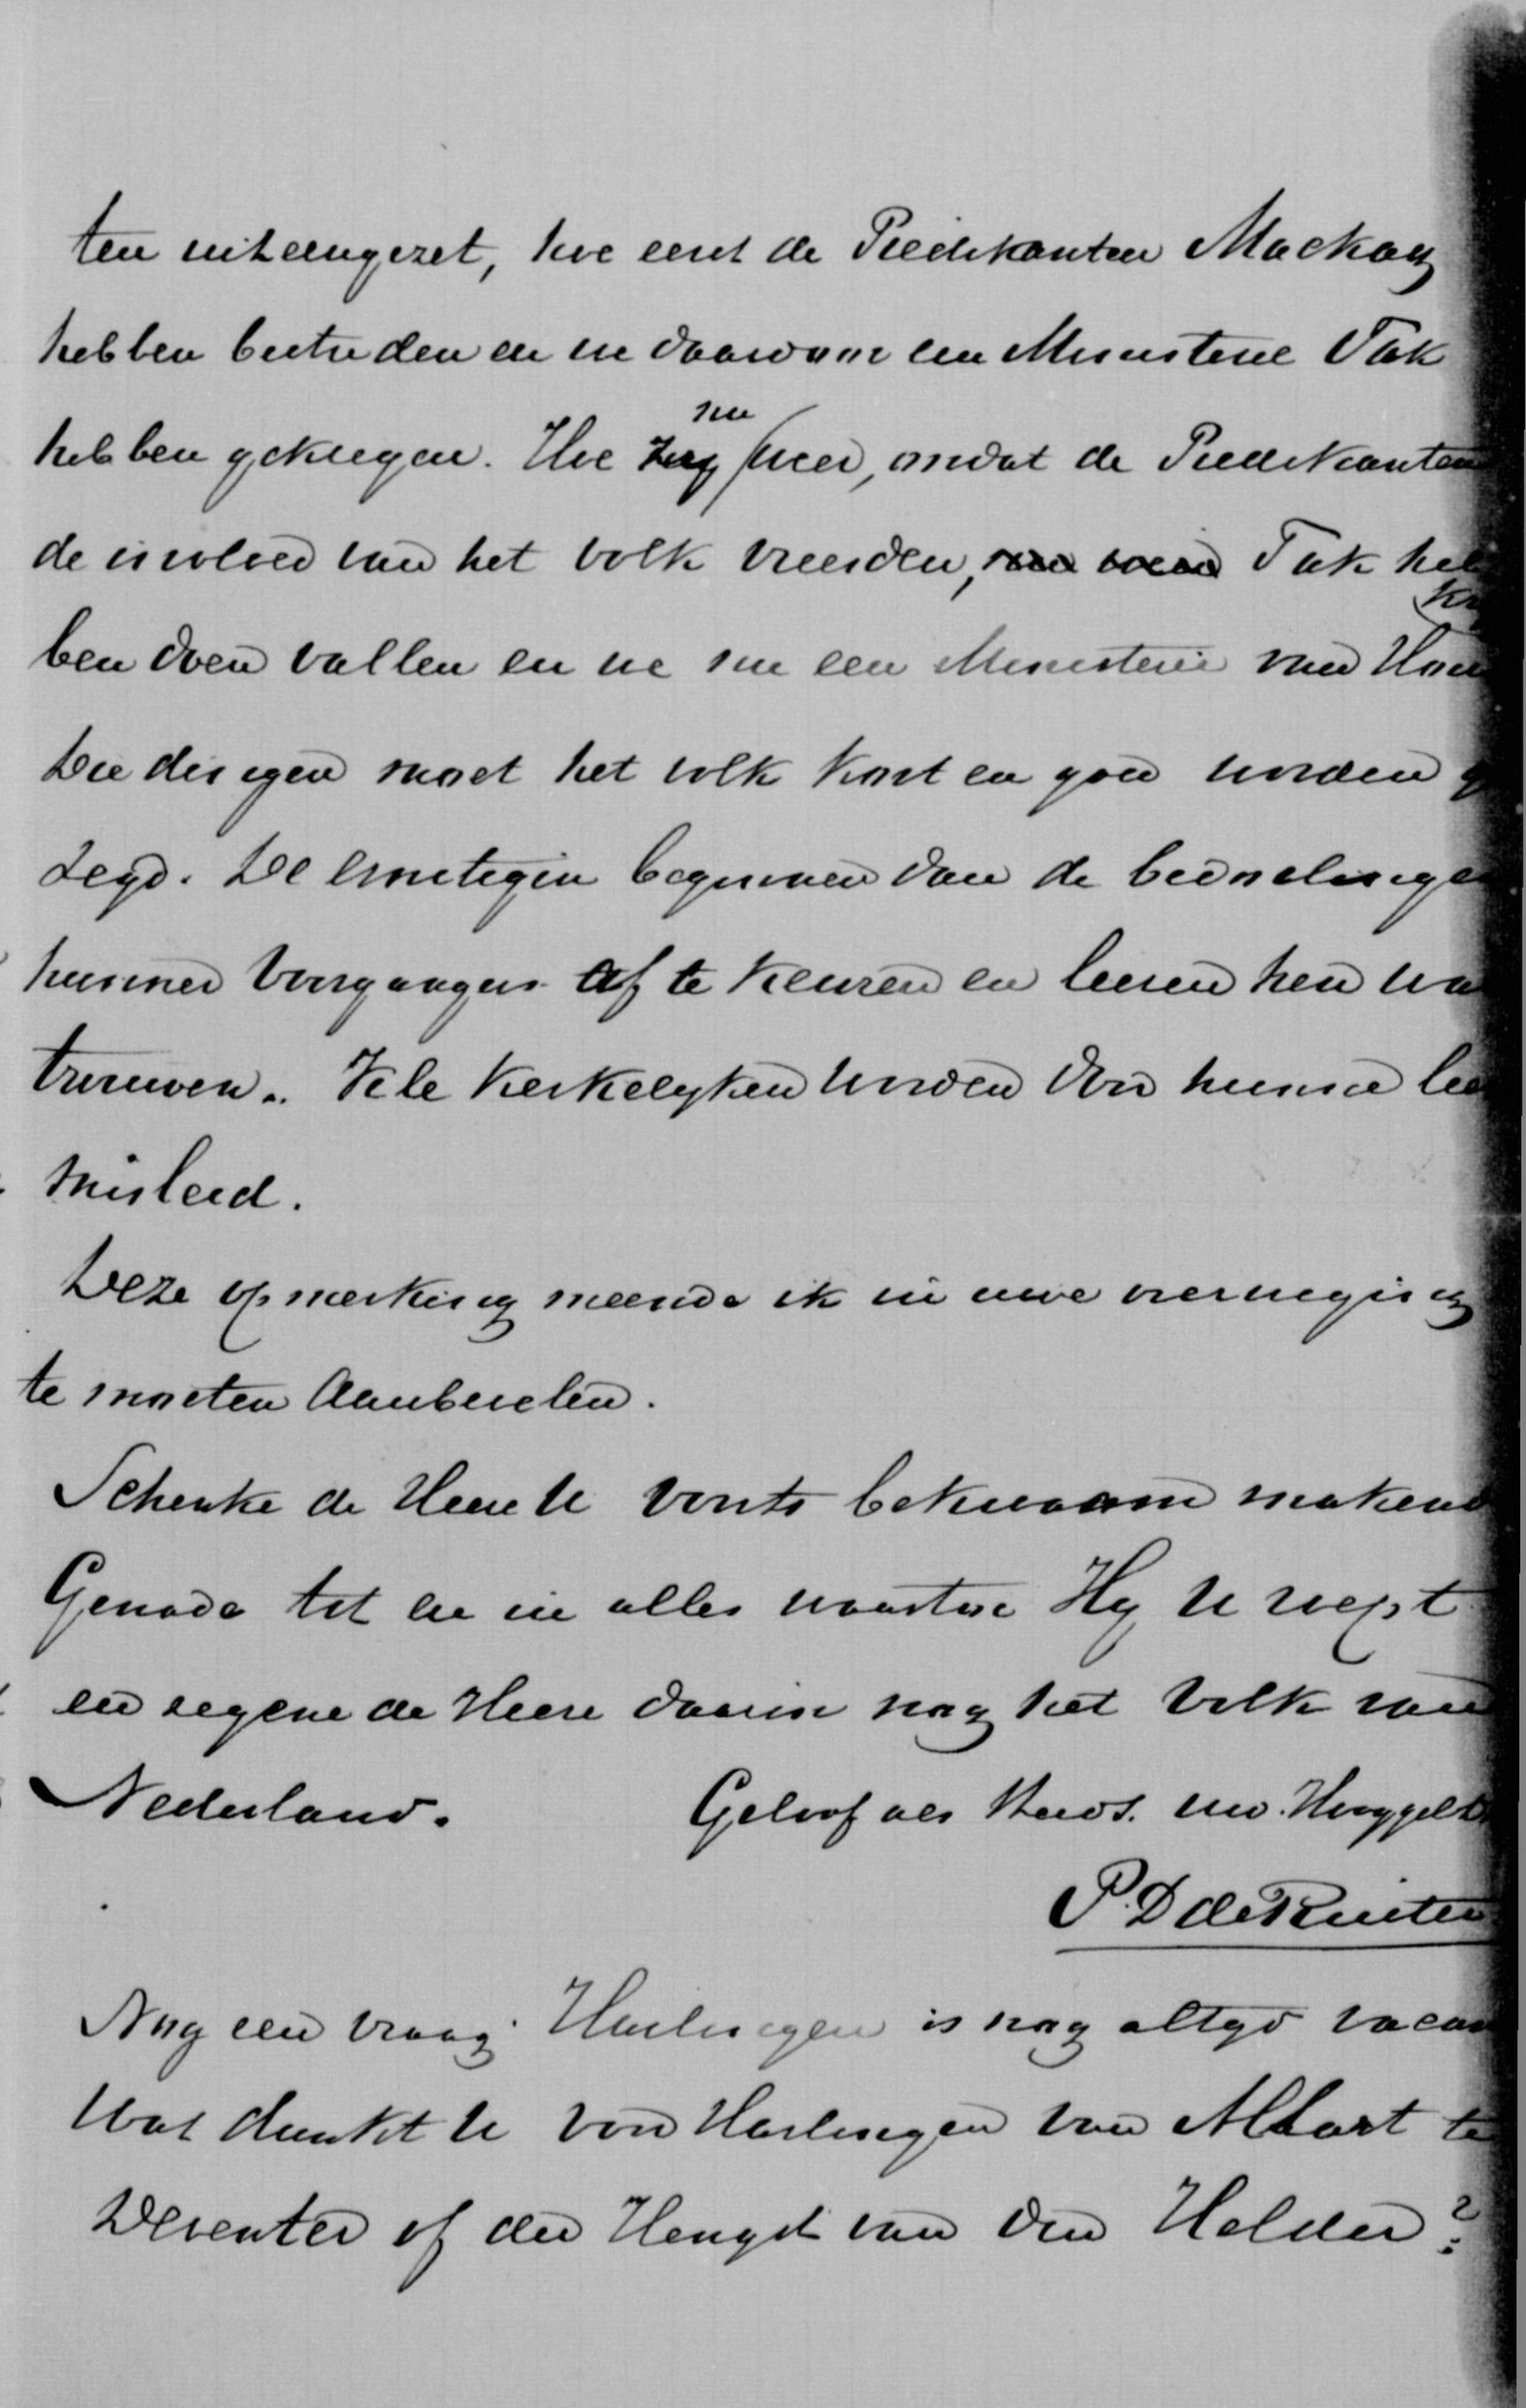 ten uiteengezet, hoe eerst de Predikanten Mackay
hebben bestreden en we daarvoor een Ministerie Tak
hebben gekregen. Hoe zy nu weer, omdat de Predikanten
de invloed van het volk vreesden, Tak heb
ben doen vallen en we nu een Ministerie van Hou
Die dingen moet het volk kort en goed worden g
zegd. De Ernstigen beginnen dan de bedoelingen
hunner voorgangers af te keuren en leeren hen wan
trouwen. Vele Kerkelyken worden door hunne lee
misleid.
Deze opmerking meende ik in uwe overweging
te moeten aanbevelen.
Schenke de Heere U voorts bekwaam makend
Genade tot en in alles waartoe Hy U roept
en zegene de Heere daarin nog het Volk van
Nederland. Geloof als steeds. uw. Hooggel
P. D de Ruiter
Nog een vraag. Harlingen is nog altyd vacan
Wat dunkt U voor Harlingen van Allart te
Deventer of der Hengst van den Helder?